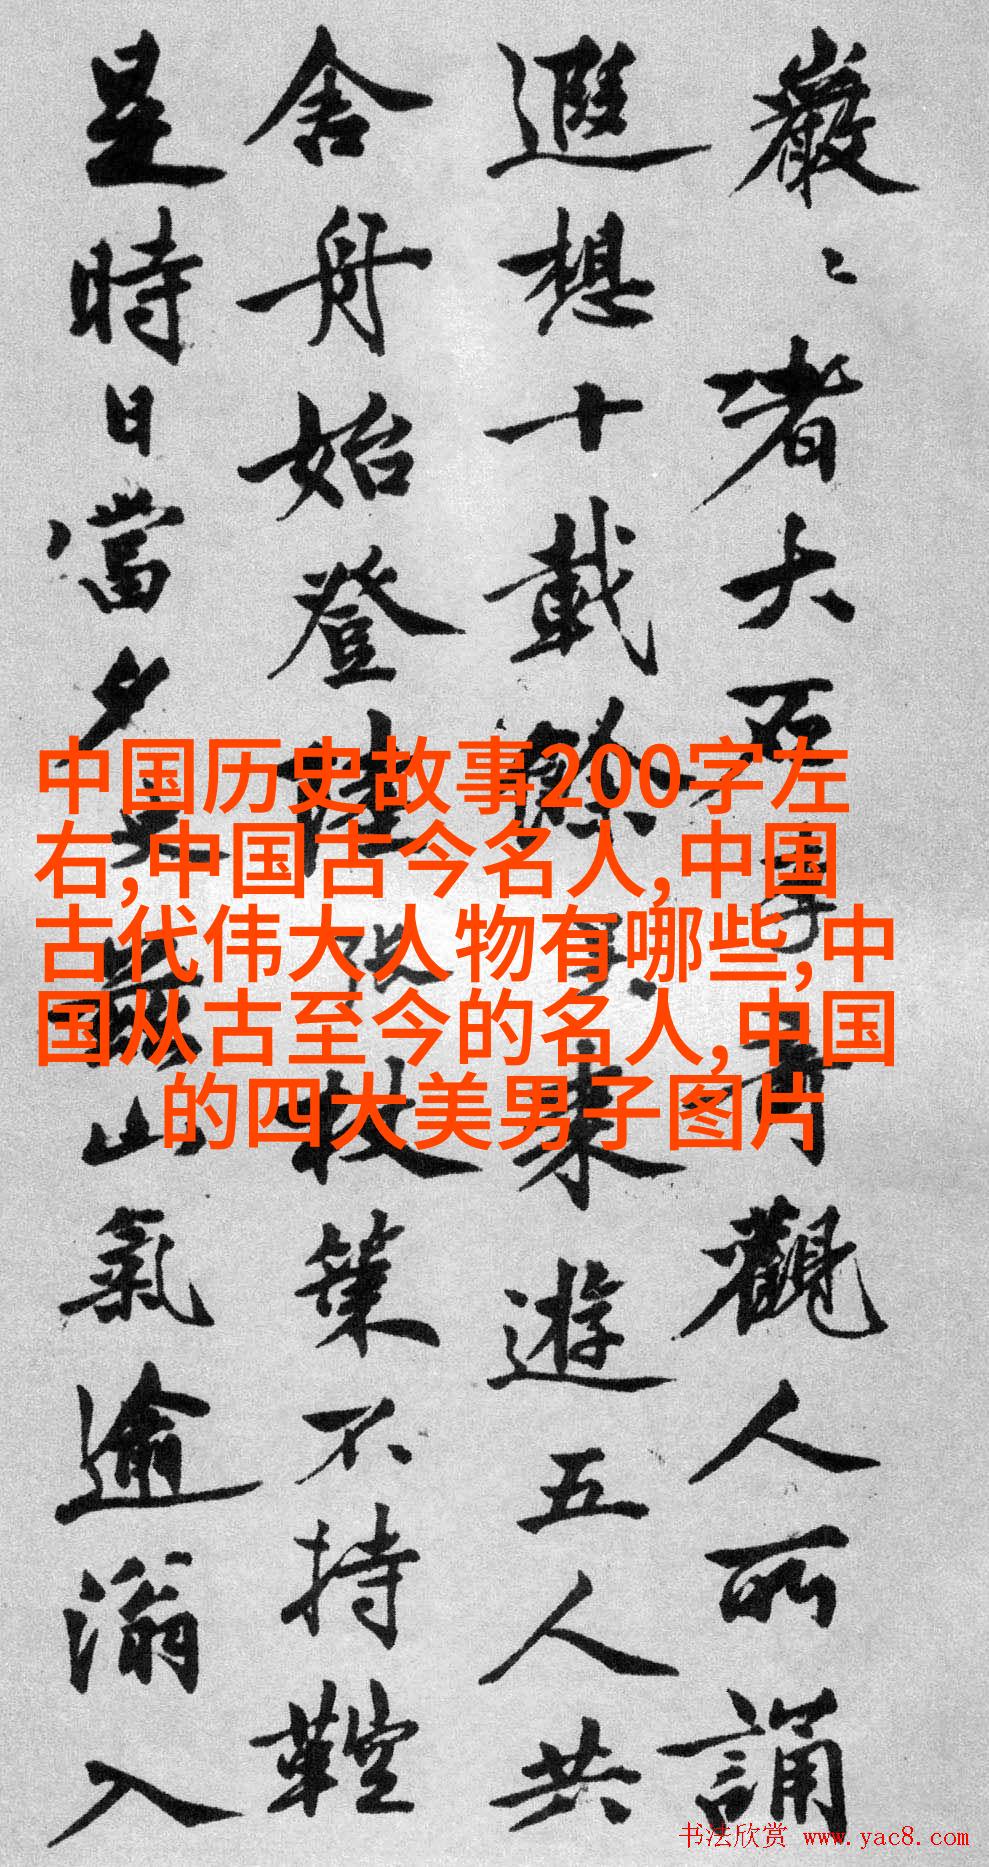 巖〻者大石觀人所誦
遐想十載餘来遊五人共
舍舟始登陸杖策不持鞚
是時日當夕山氣逾滃入
中国历史故事200字左
右,中国古今名人,中国
古代伟大人物有哪些,中
国从古至今的名人,中国
的四大美男子图片
书法欣赏 www.yac8.com